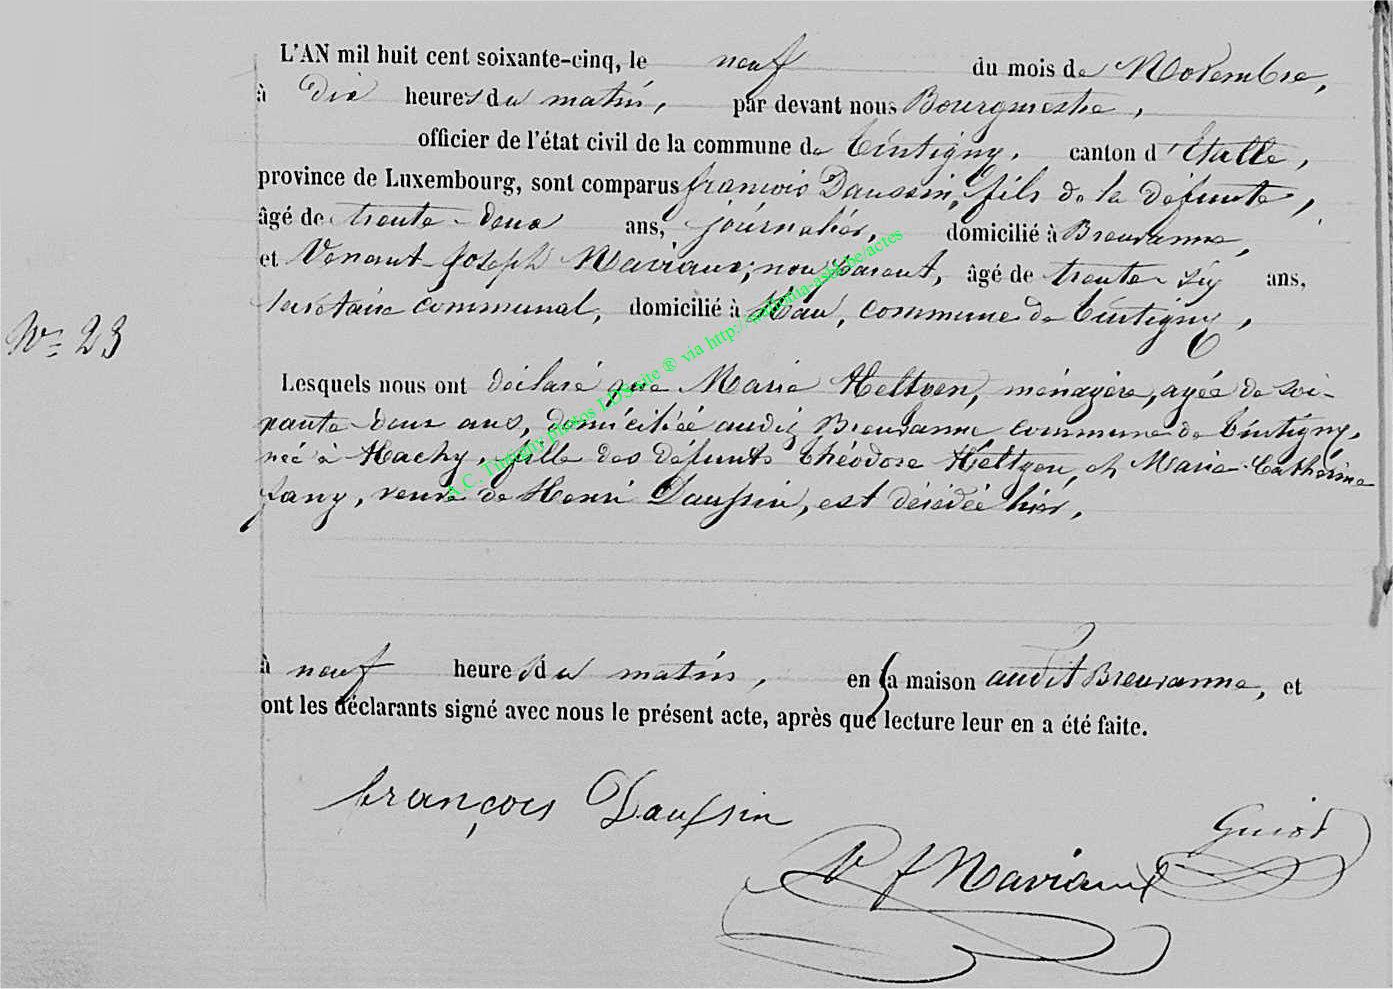 L'AN mil huit cent soixante-cinq, le neuf du mois de Novembre,
à Dix heures du matin, par devant nous Bourgmestre,
officier de l'état civil de la commune de Tintigny, canton d'Etalle,
province de Luxembourg, sont comparus francois Daussin, fils de la défunte,
âgé de trente-deux ans, journalier, domicilié à Breuvanne,
et Venant-Joseph Naviaux, non parent, âgé de trente-six ans,
secrétaire communal, domicilié à Han, commune de Tintigny,
N° 23
Lesquels nous ont déclaré que Marie Heltgen, ménagère, agée de soi-
xante-deux ans, domiciliée audit Breuvanne commune de Tintigny,
née à Hachy, fille des défunts théodore Heltgen et Marie-Catherine
Jany, veuve de Henri Daussin, est décédée hier,
à neuf heures du matin, en sa maison audit Breuvanne, et
ont les déclarants signé avec nous le présent acte, après que lecture leur en a été faite.
françois Daussin
Guiot
V J Naviaux
A.C. Tintigny photos LDS site ® via http://luxroots-asbl.be/actes